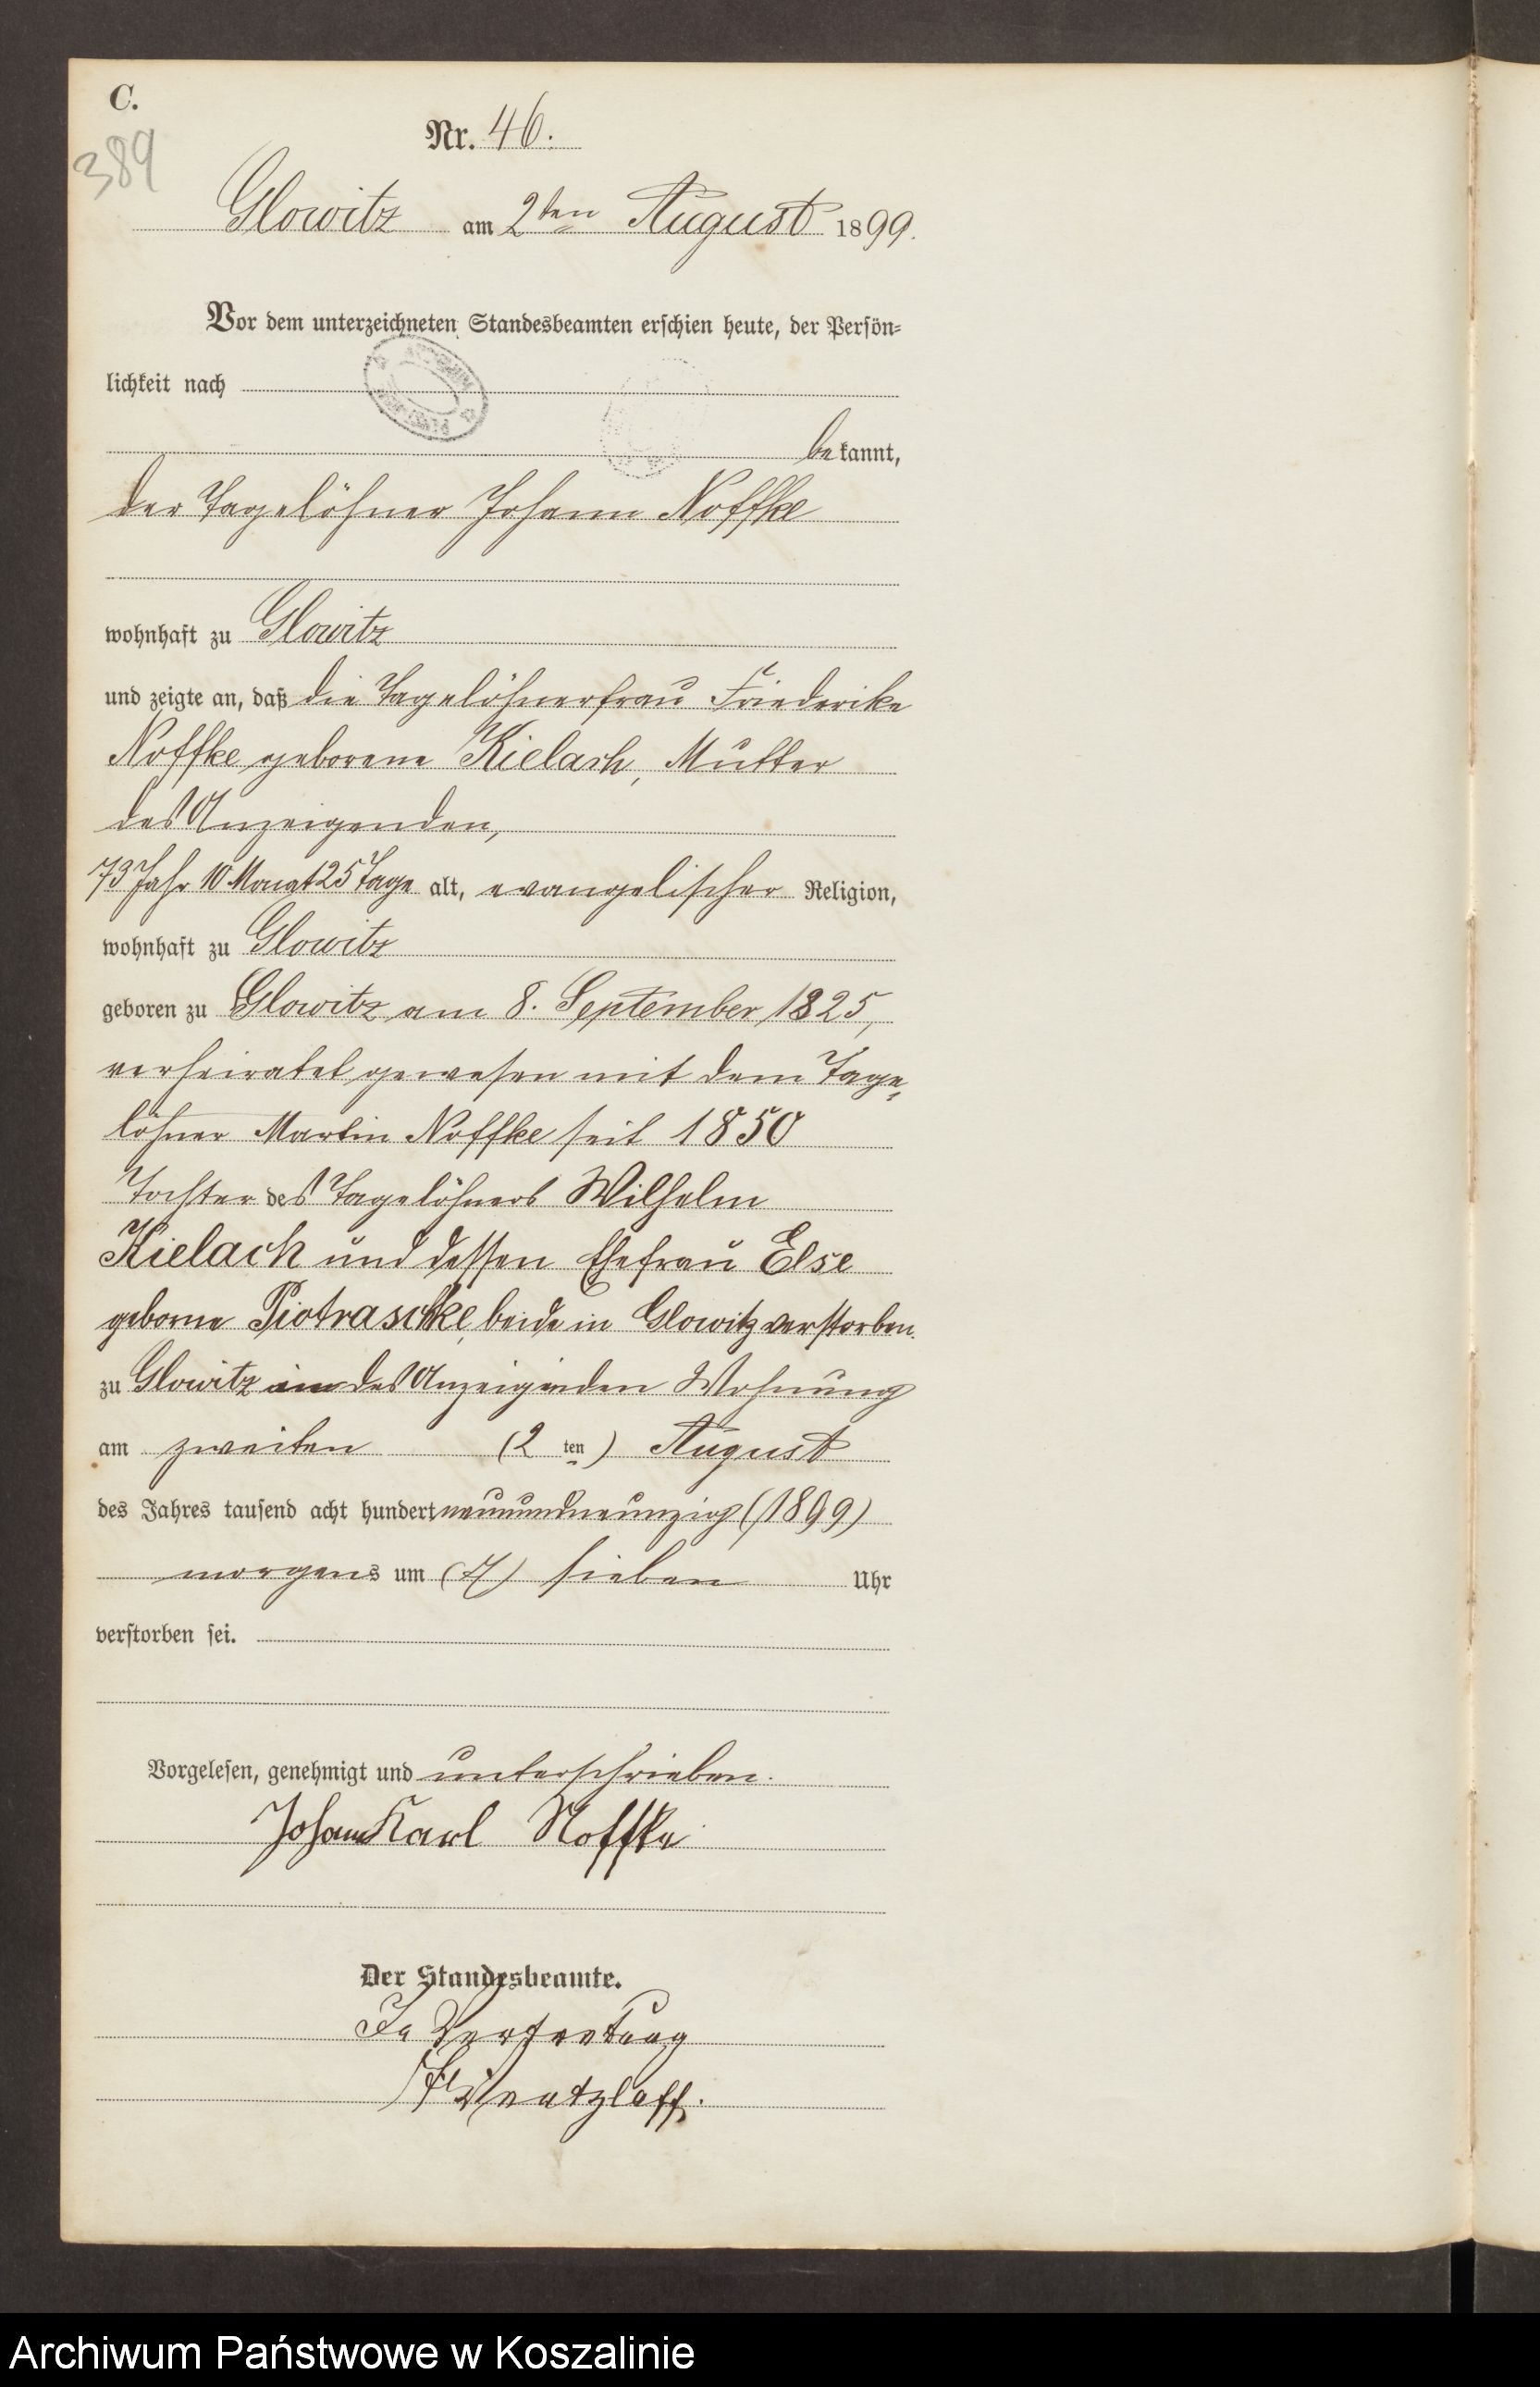 C.
389
Nr. 46.
Glowitz am 2ten August 1899.
Vor dem unterzeichneten Standesbeamten erschien heute, der Persön-
lichkeit nach
bekannt,
der Tagelöhner Johann Noffke
wohnhaft zu Glowitz
und zeigte an, daß die Tagelöhnerfrau Friederike
Noffke geborene Kielach, Mutter
des Anzeigenden,
73 Jahr 10 Monat 25 Tage alt, evangelischer Religion,
wohnhaft zu Glowitz
geboren zu Glowitz am 8. September 1825,
verheiratet gewesen mit dem Tage-
löhner Martin Noffke seit 1850
Tochter des Tagelöhners Wilhelm
Kielach und dessen Ehefrau Else
geborne Piotraschke, beide in Glowitz verstorben.
zu Glowitz in des Anzeigenden Wohnung
am zweiten (2 ten) August
des Jahres tausend acht hundert neunundneunzig (1899)
morgens um (7) sieben Uhr
verstorben sei.
Vorgelesen, genehmigt und unterschrieben.
Johann Karl Noffke
Der Standesbeamte.
In Vertretung
Wentzlaff.
Archiwum Państwowe w Koszalinie